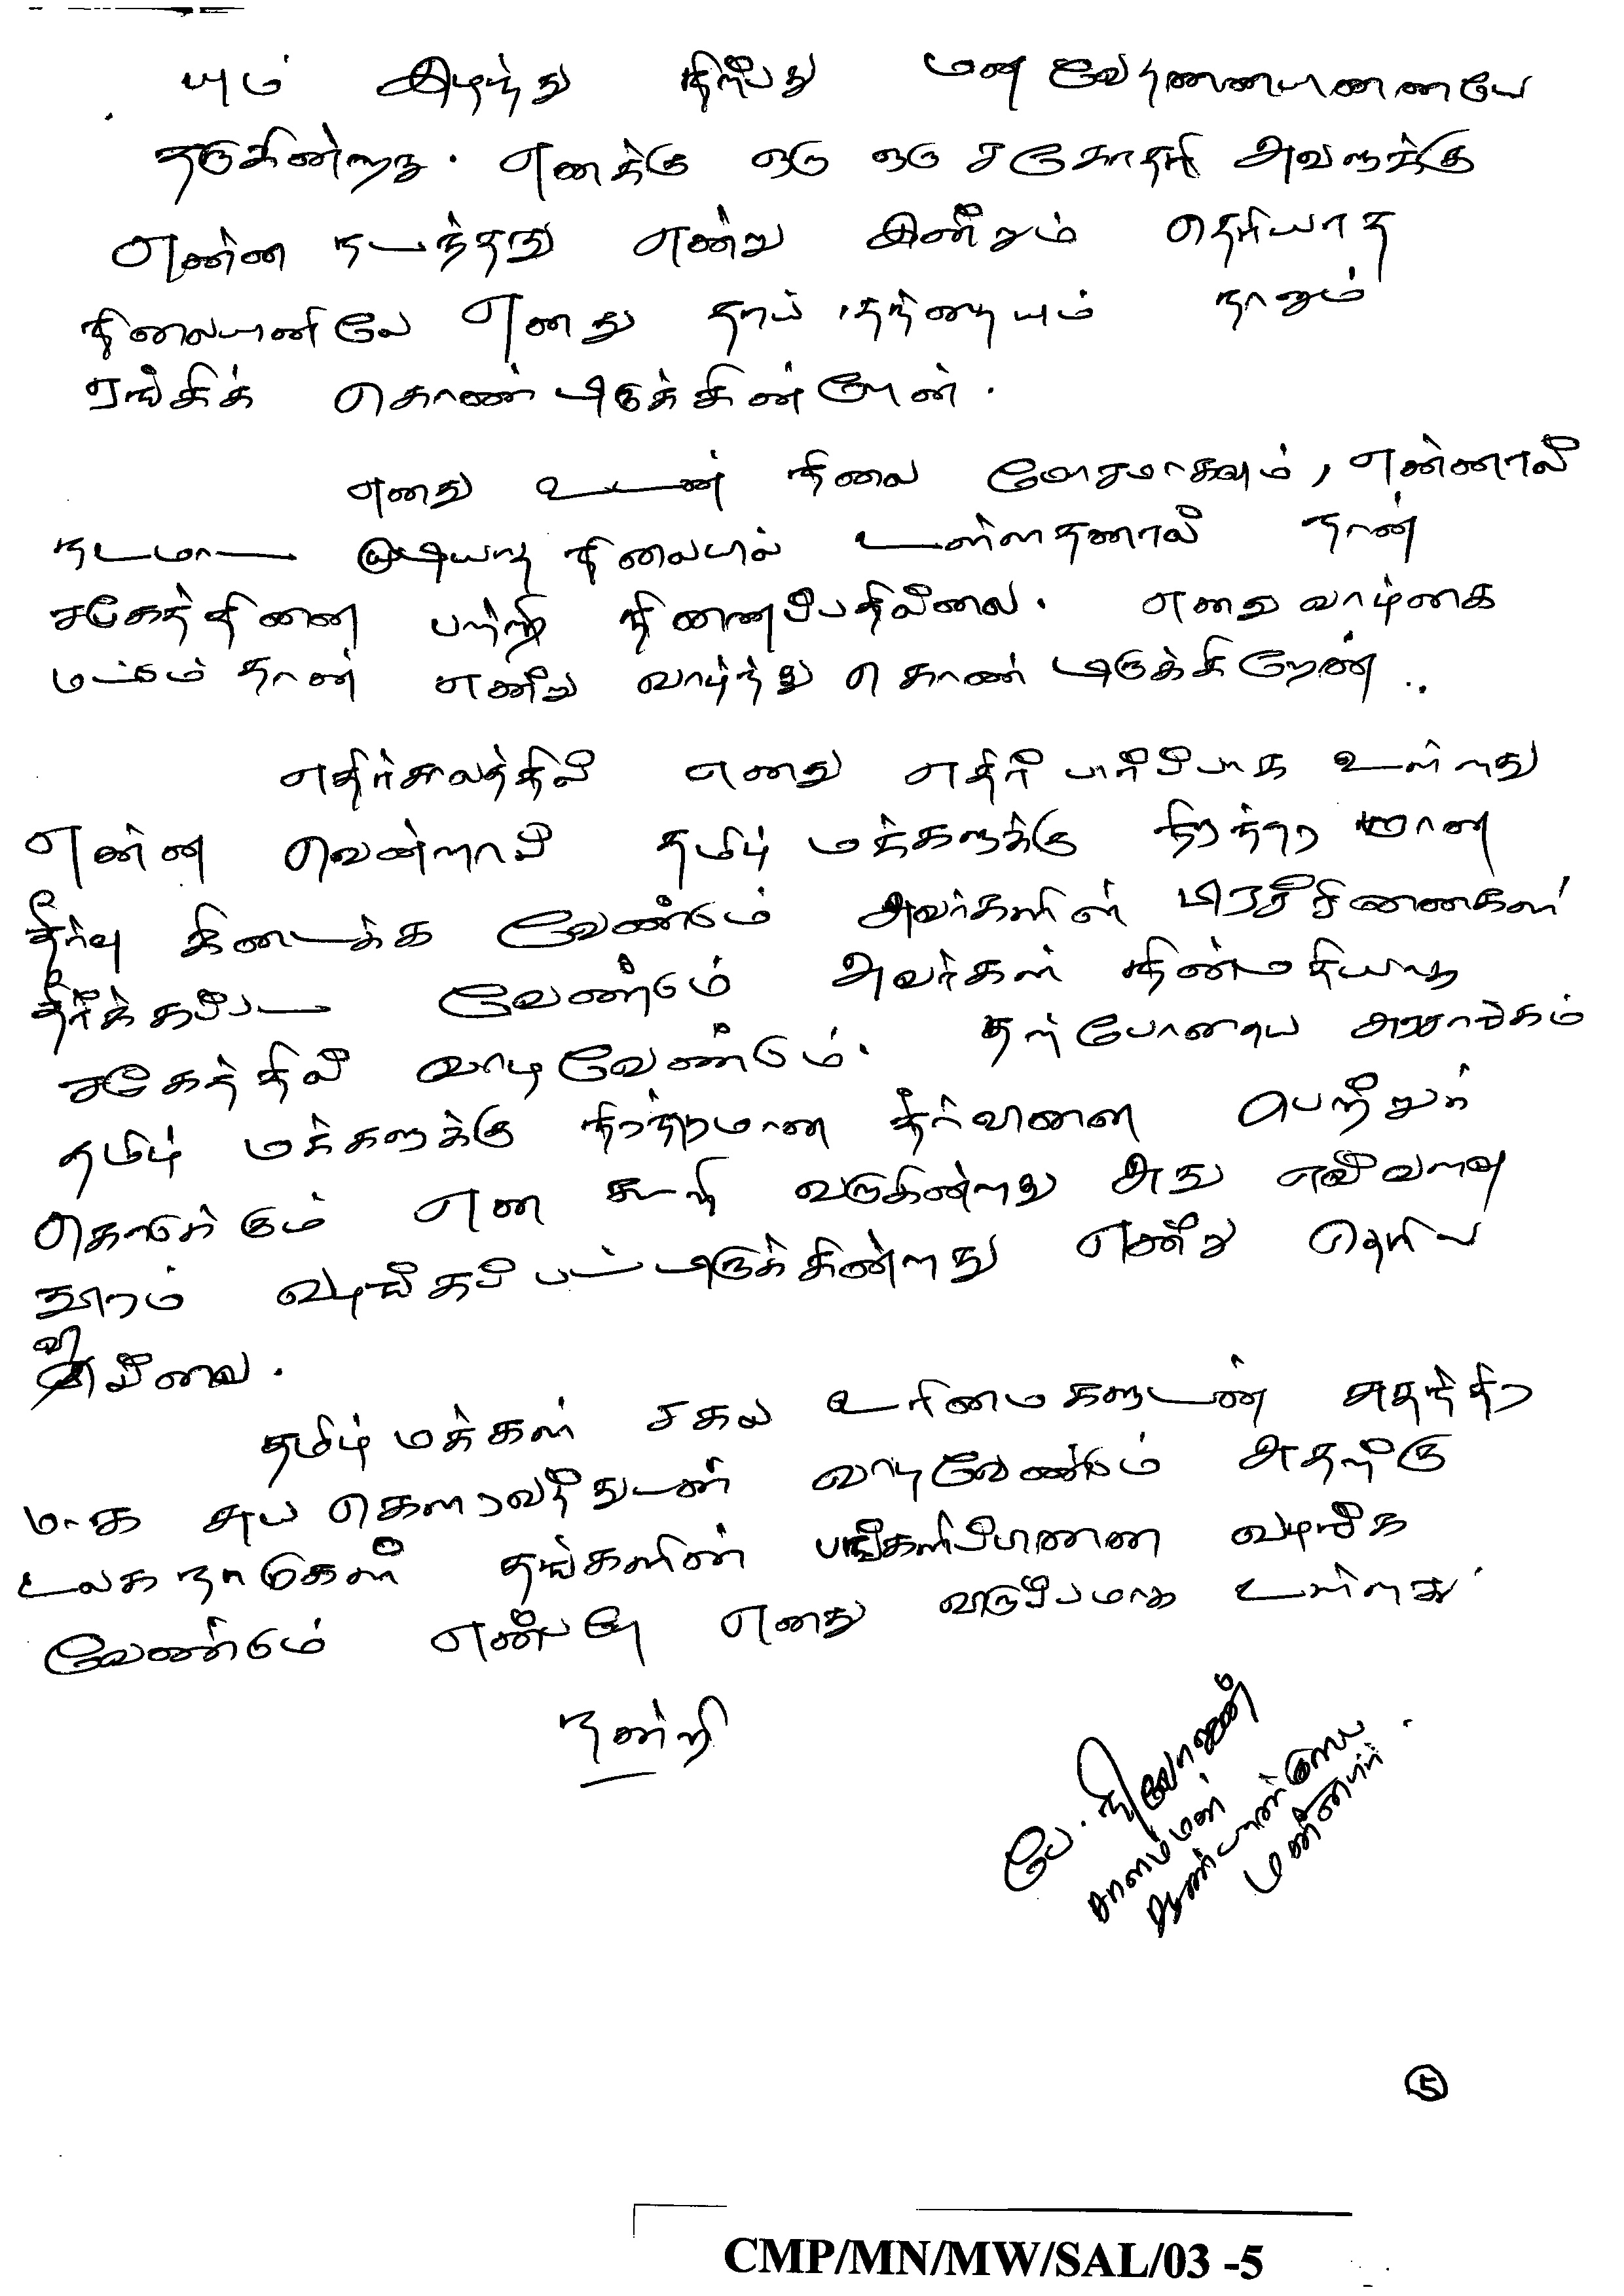 யும் இழந்து நிற்பது மன வேதனையினையே
தருகின்றது. எனக்கு ஒரு ஒரு சகோதரி அவளுக்கு
என்ன நடந்தது என்று இன்றும் தெரியாத
நிலையினிலே எனது தாய் தந்தையும் நானும்
ஏங்கிக் கொண்டிருக்கின்றேன்.
எனது உடன் நிலை மோசமாகவும், என்னால்
நடமாட முடியாத நிலையில் உள்ளதனால் நான்
சமூகத்தினை பற்றி நினைப்பதில்லை. எனது வாழ்கை
மட்டும் தான் என்று வாழ்ந்து கொண்டிருக்கிறேன்..
எதிர்காலத்தில் எனது எதிர் பார்ப்பாக உள்ளது
என்ன வென்றால் தமிழ் மக்களுக்கு நிரந்தரமான
தீர்வு கிடைக்க வேண்டும் அவர்களின் பிரச்சினைகள்
தீர்க்கப்பட வேண்டும் அவர்கள் நின்மதியாக
சமூகத்தில் வாழவேண்டும். தற்போதைய அரசாங்கம்
தமிழ் மக்களுக்கு நிரந்தரமான தீர்வினை பெற்றுக்
கொடுக்கும் என கூறி வருகின்றது அது எவ்வளவு
தூரம் வழங்கப்பட்டிருக்கின்றது என்று தெரிய
வில்லை.
தமிழ் மக்கள் சகல உரிமைகளுடன் சுதந்திர
மாக சுய கௌரவத்துடன் வாழவேண்டும் அதற்கு
உலக நாடுகள் தங்களின் பங்களிப்பினை வழங்க
வேண்டும் என்பதே எனது விருப்பமாக உள்ளது.
நன்றி
பே. நிரோஜன்
சாளம்பன்
ஆண்டான்குளம்
மன்னார்.
5
CMP/MN/MW/SAL/03 -5